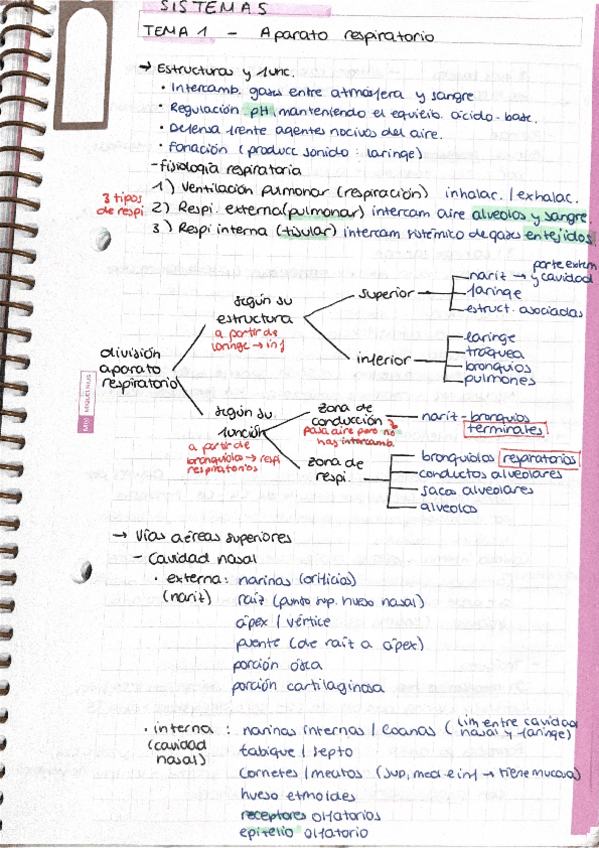 SISTEMAS
TEMA 1 - Aparato respiratorio
→ Estructuras y func.
· Intercamb. gases entre atmósfera y sangre
· Regulación pH, manteniendo el equilib. ácido-base.
· Defensa frente agentes nocivos del aire.
· Fonación (producc sonido: laringe)
- fisiología respiratoria
3 tipos de respi
1) Ventilación pulmonar (respiración) inhalac. / exhalac.
2) Respi. externa (pulmonar) intercam aire alveolos y sangre.
3) Respi interna (tisular) intercam sistémico de gases en tejidos.
división aparato respiratorio
según su estructura
a partir de laringe → inf
superior →
nariz → parte extern y cavidad
faringe
estruct. asociadas
inferior →
laringe
tráquea
bronquios
pulmones
según su función
a partir de bronquiolos → respi respiratorios
zona de conducción →
pasa aire pero no hay intercamb.
nariz - bronquios terminales
zona de respi. →
bronquiolos respiratorios
conductos alveolares
sacos alveolares
alveolos
→ Vías aéreas superiores
- Cavidad nasal
· externa: narinas (orificios)
(nariz) raíz (punto sup. hueso nasal)
ápex / vértice
puente (de raíz a ápex)
porción ósea
porción cartilaginosa
· interna : narinas internas / coanas (lim entre cavidad nasal y faringe)
(cavidad nasal) tabique / septo
cornetes / meatos (sup, med e inf → tiene mucosa)
hueso etmoides
receptores olfatorios
epitelio olfatorio